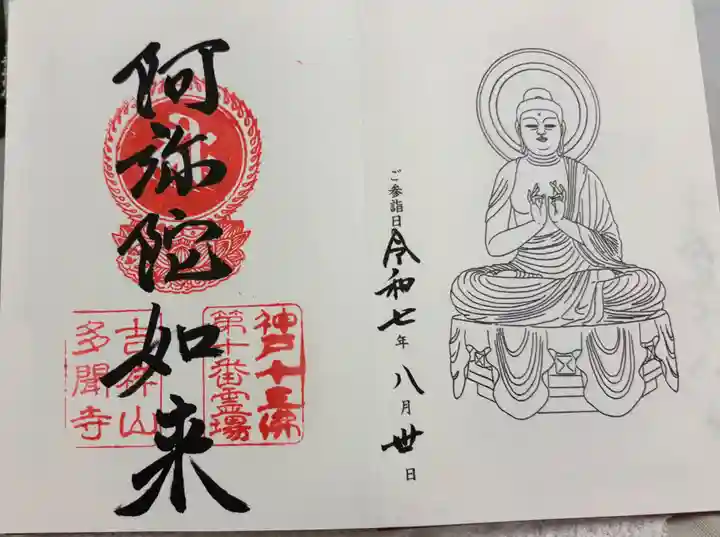 ご参詣日 令和七年 八月 丗日
阿弥陀如来
神戸十三佛
第十番霊場
吉祥山
多聞寺